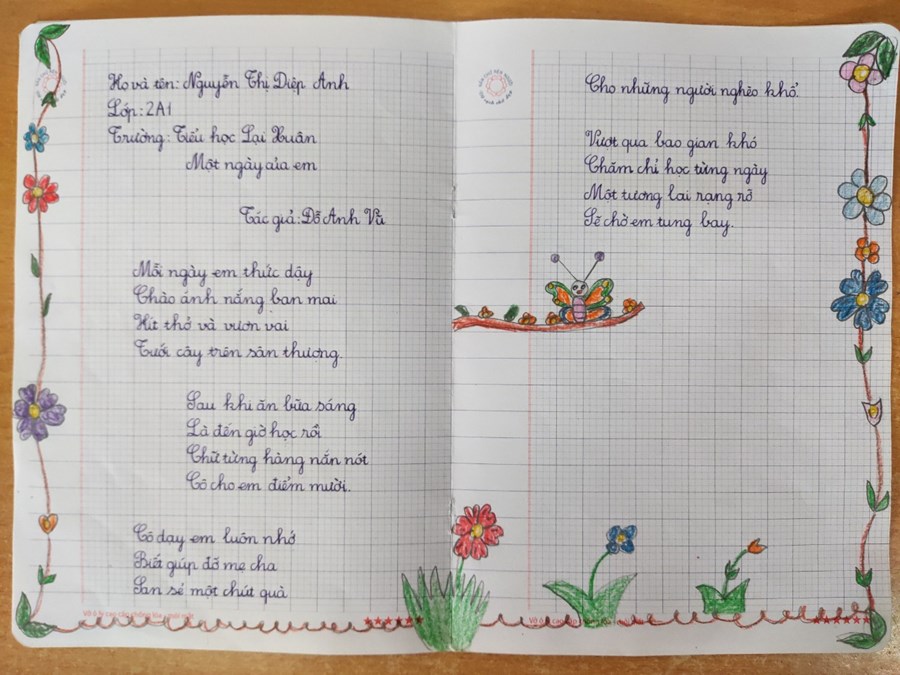 Họ và tên: Nguyễn Thị Diệp Anh
Lớp: 2A1
Trường: Tiểu học Lại Xuân
Một ngày của em
Tác giả: Đỗ Anh Vũ
Mỗi ngày em thức dậy
Chào ánh nắng ban mai
Hít thở và vươn vai
Tưới cây trên sân thượng.
Sau khi ăn bữa sáng
Là đến giờ học rồi
Chữ từng hàng nắn nót
Cô cho em điểm mười.
Cô dạy em luôn nhớ
Biết giúp đỡ mẹ cha
San sẻ một chút quà
Cho những người nghèo khổ.
Vượt qua bao gian khó
Chăm chỉ học từng ngày
Một tương lai rạng rỡ
Sẽ chờ em tung bay.